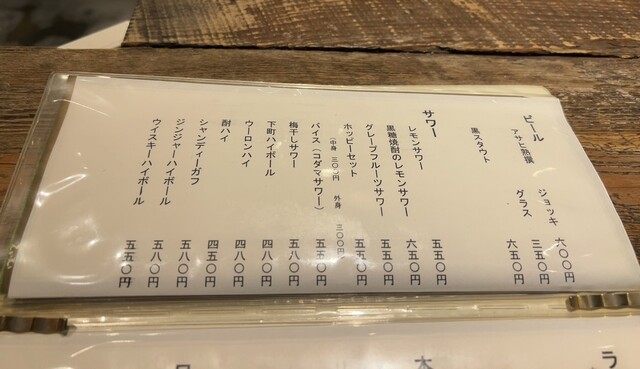 ビール
アサヒ熟撰 ジョッキ 六〇〇円
グラス 三五〇円
黒スタウト 六五〇円
サワー
レモンサワー 五五〇円
黒糖焼酎のレモンサワー 六五〇円
グレープフルーツサワー 五五〇円
ホッピーセット 五五〇円
(中身 三〇〇円 外身 三〇〇円)
バイス(コダマサワー) 五五〇円
梅干しサワー 五八〇円
下町ハイボール 四八〇円
ウーロンハイ 四八〇円
酎ハイ 四五〇円
シャンディーガフ 五八〇円
ジンジャーハイボール 五八〇円
ウイスキーハイボール 五五〇円